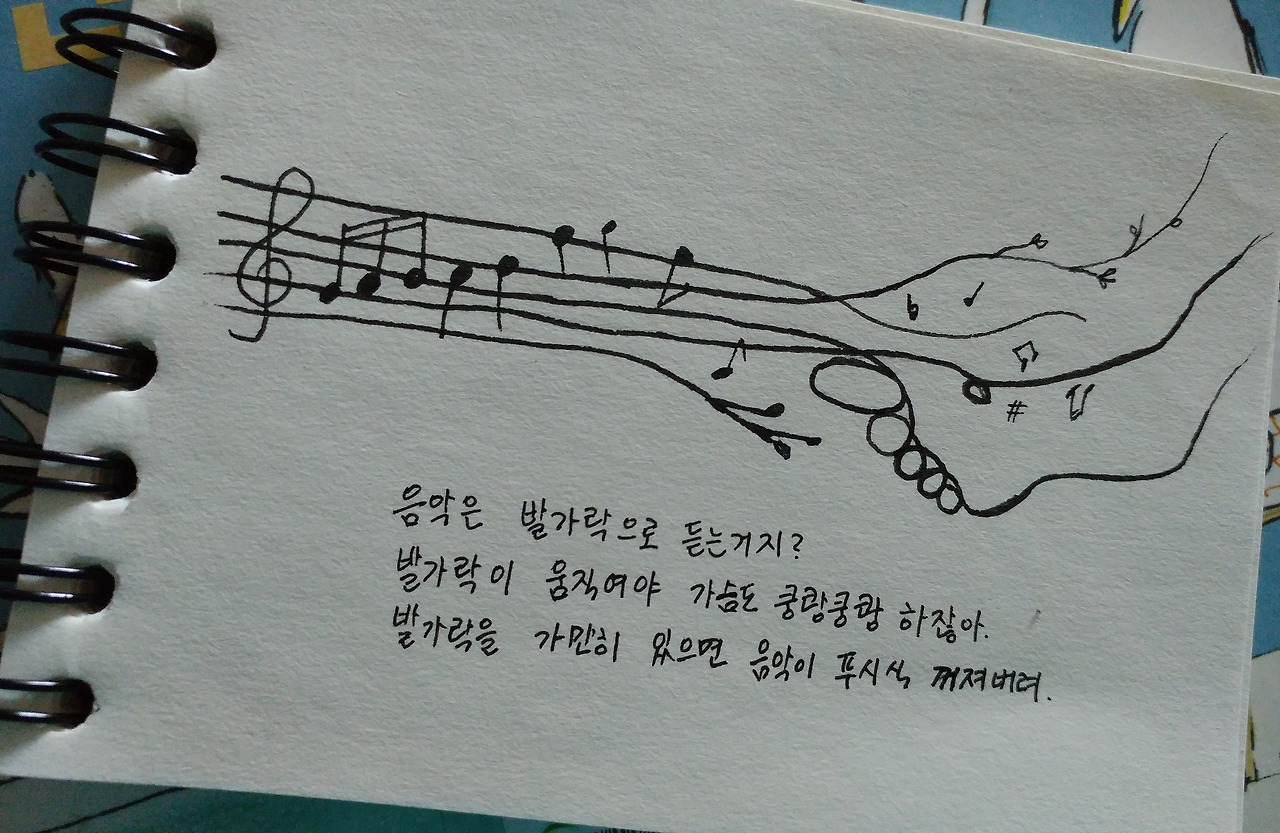 음악은 발가락으로 듣는거지?
발가락이 움직여야 가슴도 쿵쾅쿵쾅 하잖아.
발가락을 가만히 있으면 음악이 푸시식 꺼져버려.